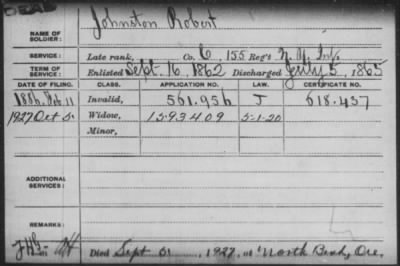 DEAD
Johnston Robert
NAME OF SOLDIER:
SERVICE: Late rank, Co. C, 155 Reg't N.Y. Inf.
TERM OF SERVICE: Enlisted Sept. 16, 1862 Discharged July 5, 1865
DATE OF FILING. CLASS. APPLICATION NO. LAW. CERTIFICATE NO.
1886, Feb 11 Invalid, 561.956 J 618.437
1927 Oct 5 Widow, 1593409 5-1-20
Minor,
ADDITIONAL SERVICES:
REMARKS:
Died Sept 5, 1927, at North Bend, Ore,